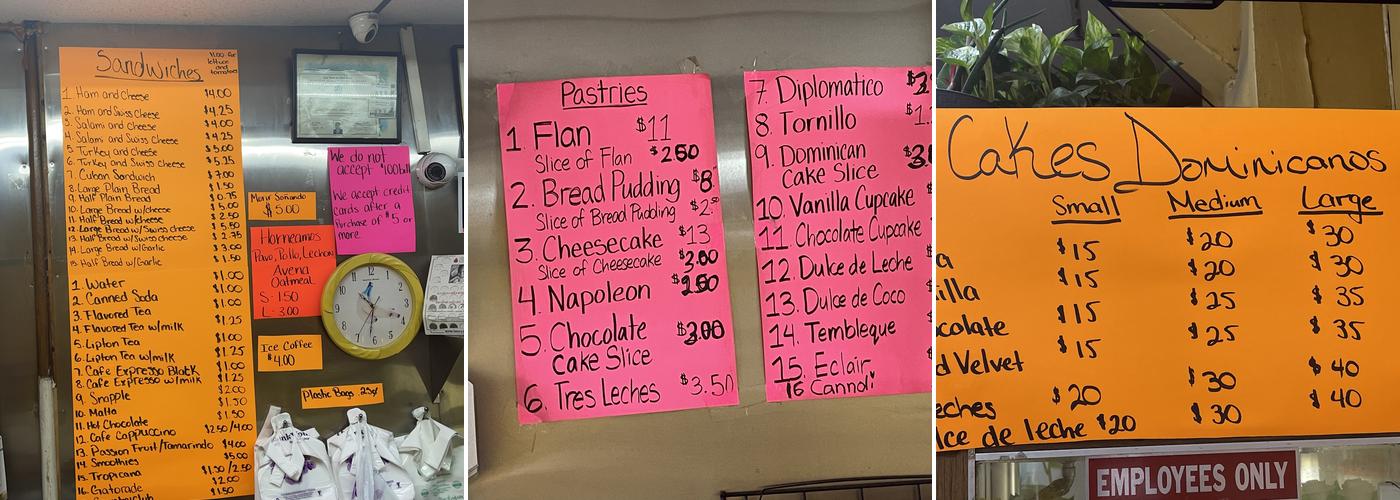 Sandwiches
$1.00 for
lettuce
and
tomatoes
1. Ham and Cheese $4.00
2. Ham and Swiss Cheese $4.25
3. Salami and Cheese $4.00
4. Salami and Swiss Cheese $4.25
5. Turkey and Cheese $5.00
6. Turkey and Swiss Cheese $5.25
7. Cuban Sandwich $7.00
8. Large Plain Bread $1.50
9. Half Plain Bread $0.75
10. Large Bread w/Cheese $5.00
11. Half Bread w/Cheese $2.50
12. Large Bread w/Swiss Cheese $5.50
13. Half Bread w/Swiss cheese $2.75
14. Large Bread w/Garlic $3.00
15. Half Bread w/Garlic $1.50
1. Water $1.00
2. Canned Soda $1.00
3. Flavored Tea $1.00
4. Flavored Tea w/milk $1.25
5. Lipton Tea $1.00
6. Lipton Tea w/milk $1.25
7. Cafe Expresso Black $1.00
8. Cafe Expresso w/milk $1.25
9. Snapple $2.00
10. Malta $1.50
11. Hot Chocolate $1.50
12. Cafe Cappuccino $2.50/4.00
13. Passion Fruit/Tamarindo $4.00
14. Smoothies $5.00
15. Tropicana $1.50/2.50
16. Gatorade $2.00
$1.50
We do not
accept $100 bill
We accept credit
cards after a
Purchase of $5 or
more.
Morir Soñando
$5.00
Horneamos
Pavo, Pollo, Lechon
Avena
Oatmeal
S - 1.50
L - 3.00
Ice Coffee
$4.00
Plastic Bags .25¢
Pastries
1. Flan $11
Slice of Flan $2.50
2. Bread Pudding $8
Slice of Bread Pudding $2.
3. Cheesecake $13
Slice of Cheesecake
4. Napoleon
5. Chocolate
Cake Slice
6. Tres Leches $3.50
7. Diplomatico
8. Tornillo $1.
9. Dominican
Cake Slice
10. Vanilla Cupcake
11. Chocolate Cupcake
12. Dulce de Leche
13. Dulce de Coco
14. Tembleque
15. Eclair
16 Cannoli
Cakes Dominicanos
Small Medium Large
a $15 $20 $30
illa $15 $20 $30
colate $15 $25 $35
d Velvet $15 $25 $35
eches $20 $30 $40
lce de leche $20 $30 $40
EMPLOYEES ONLY